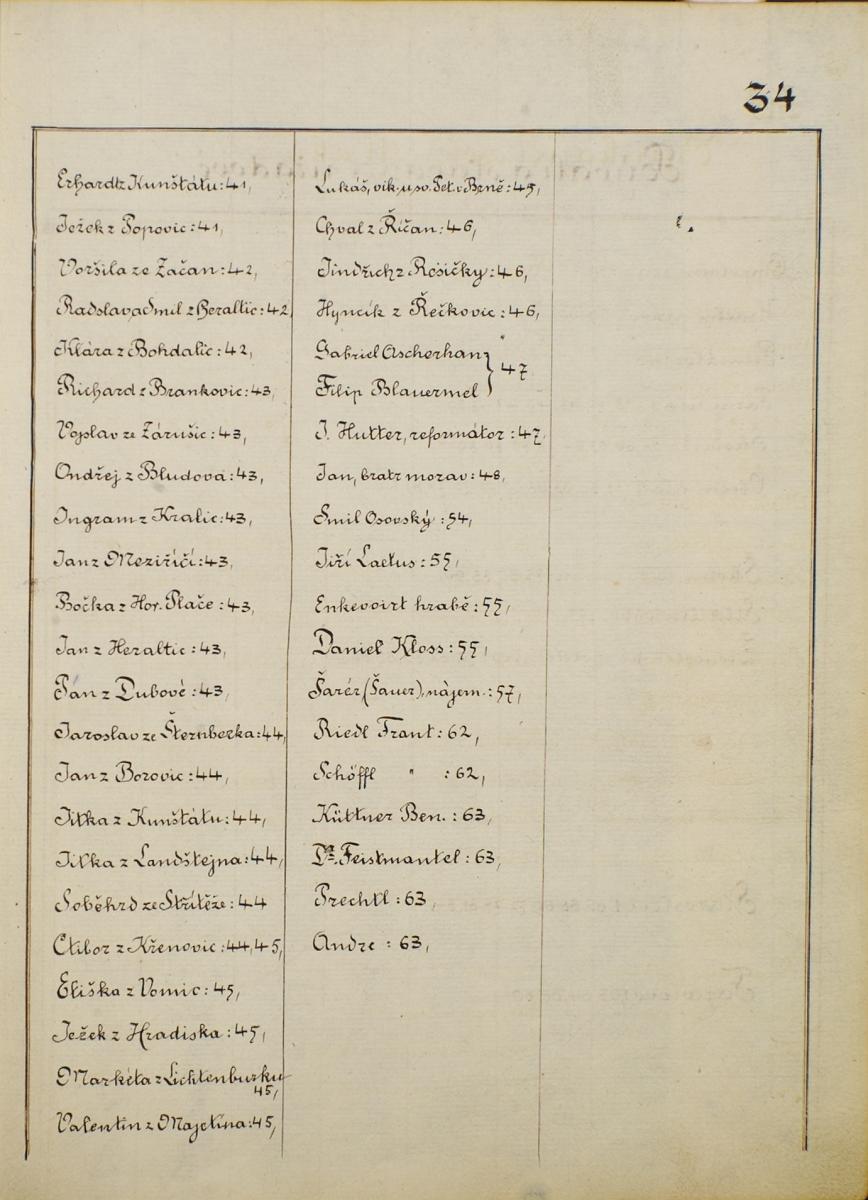 34
Erhard z Kunštátu: 41,
Ježek z Popovic: 41,
Voršila ze Začan: 42,
Radslav a Smil z Heraltic: 42
Klára z Bohdalic: 42,
Richard z Brankovic: 43,
Vojslav ze Zárušic: 43,
Ondřej z Bludova: 43,
Ingram z Kralic: 43,
Jan z Meziříčí: 43,
Bočka z Hor. Plače: 43,
Jan z Heraltic: 43,
Pán z Dubové: 43,
Jaroslav ze Šternberka: 44,
Jan z Borovic: 44,
Jitka z Kunštátu: 44,
Jitka z Landštejna: 44,
Soběhrd ze Střítěže: 44
Ctibor z Křenovic: 44, 45,
Eliška z Vomic: 45,
Ježek z Hradiska: 45,
Markéta z Lichtenburku
45,
Valentin z Majetína: 45,
Lukáš, vik. u sv. Pet. v Brně: 45,
Chval z Říčan: 46,
Jindřich z Rosičky: 46,
Hyncík z Řečkovic: 46,
Gabriel Ascherhan } 47
Filip Blauermel
J. Hutter, reformátor: 47,
Jan, bratr morav: 48,
Smil Osovský: 54,
Jiří Laetus: 55,
Enkevoirt hrabě: 55,
Daniel Kloss: 55,
Šarér (Šauer), nájem.: 57,
Riedl Frant: 62,
Schöffl " : 62,
Küttner Ben.: 63,
Dr. Feistmantel: 63,
Prechtl: 63,
Andre: 63,